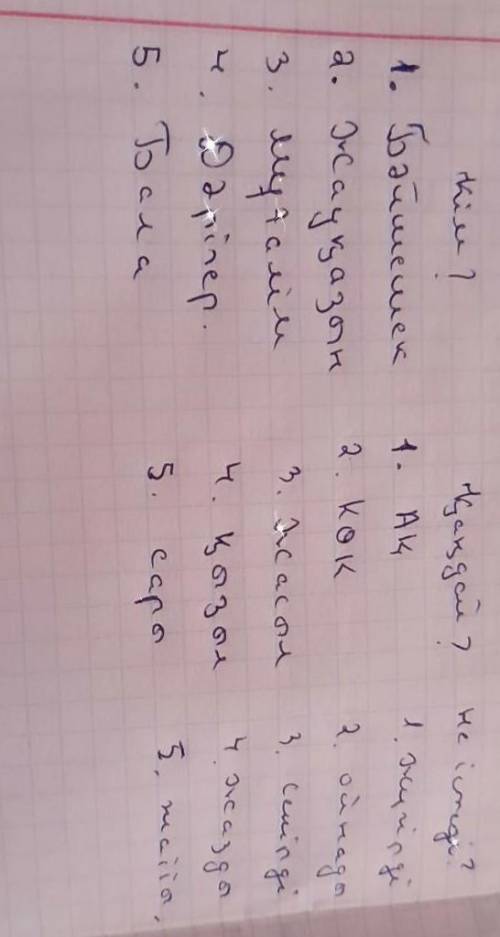 Кім? Қандай? Не істеді?
1. Бәйшешек 1. Ақ 1. жүгірді
2. Жауқазын 2. Көк 2. ойнады
3. Мұғалім 3. Жасыл 3. секірді
4. Дәрігер. 4. қызыл 4. жазды
5. Бала 5. сары 5.